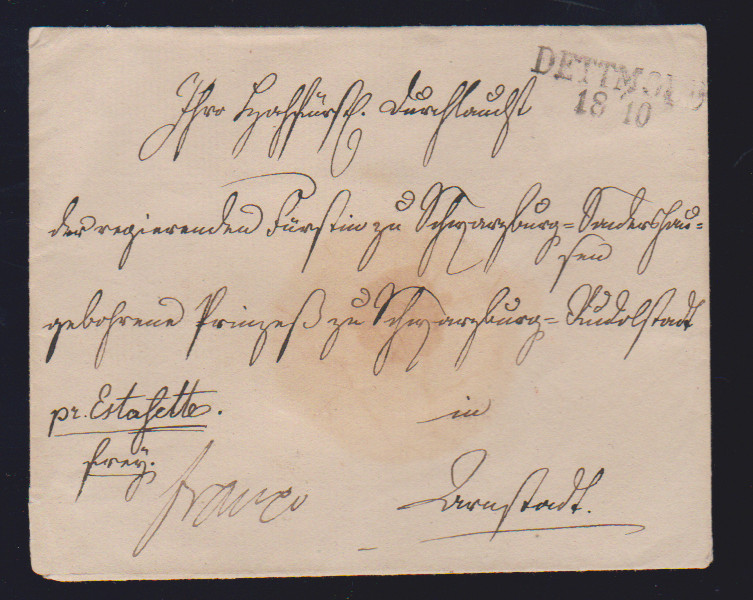 DETTMOLD
18 10
Ihro Hochfürstl. Durchlaucht
der regierenden Fürstin zu Schwarzburg=Sondershau=
sen
gebohrene Prinzeß zu Schwarzburg=Rudolstadt
pr. Estafette.
in
frey.
franco
Arnstadt.